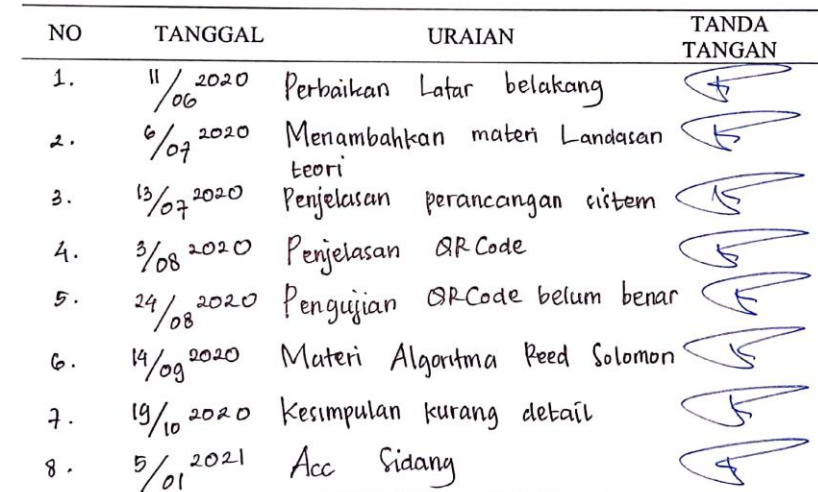 NO TANGGAL URAIAN TANDA TANGAN
1. 11/06 2020 Perbaikan Latar belakang
2. 6/07 2020 Menambahkan materi Landasan
teori
3. 13/07 2020 Penjelasan perancangan sistem
4. 3/08 2020 Penjelasan QR Code
5. 24/08 2020 Pengujian QRCode belum benar
6. 14/09 2020 Materi Algoritma Reed Solomon
7. 19/10 2020 Kesimpulan kurang detail
8. 5/01 2021 Acc Sidang